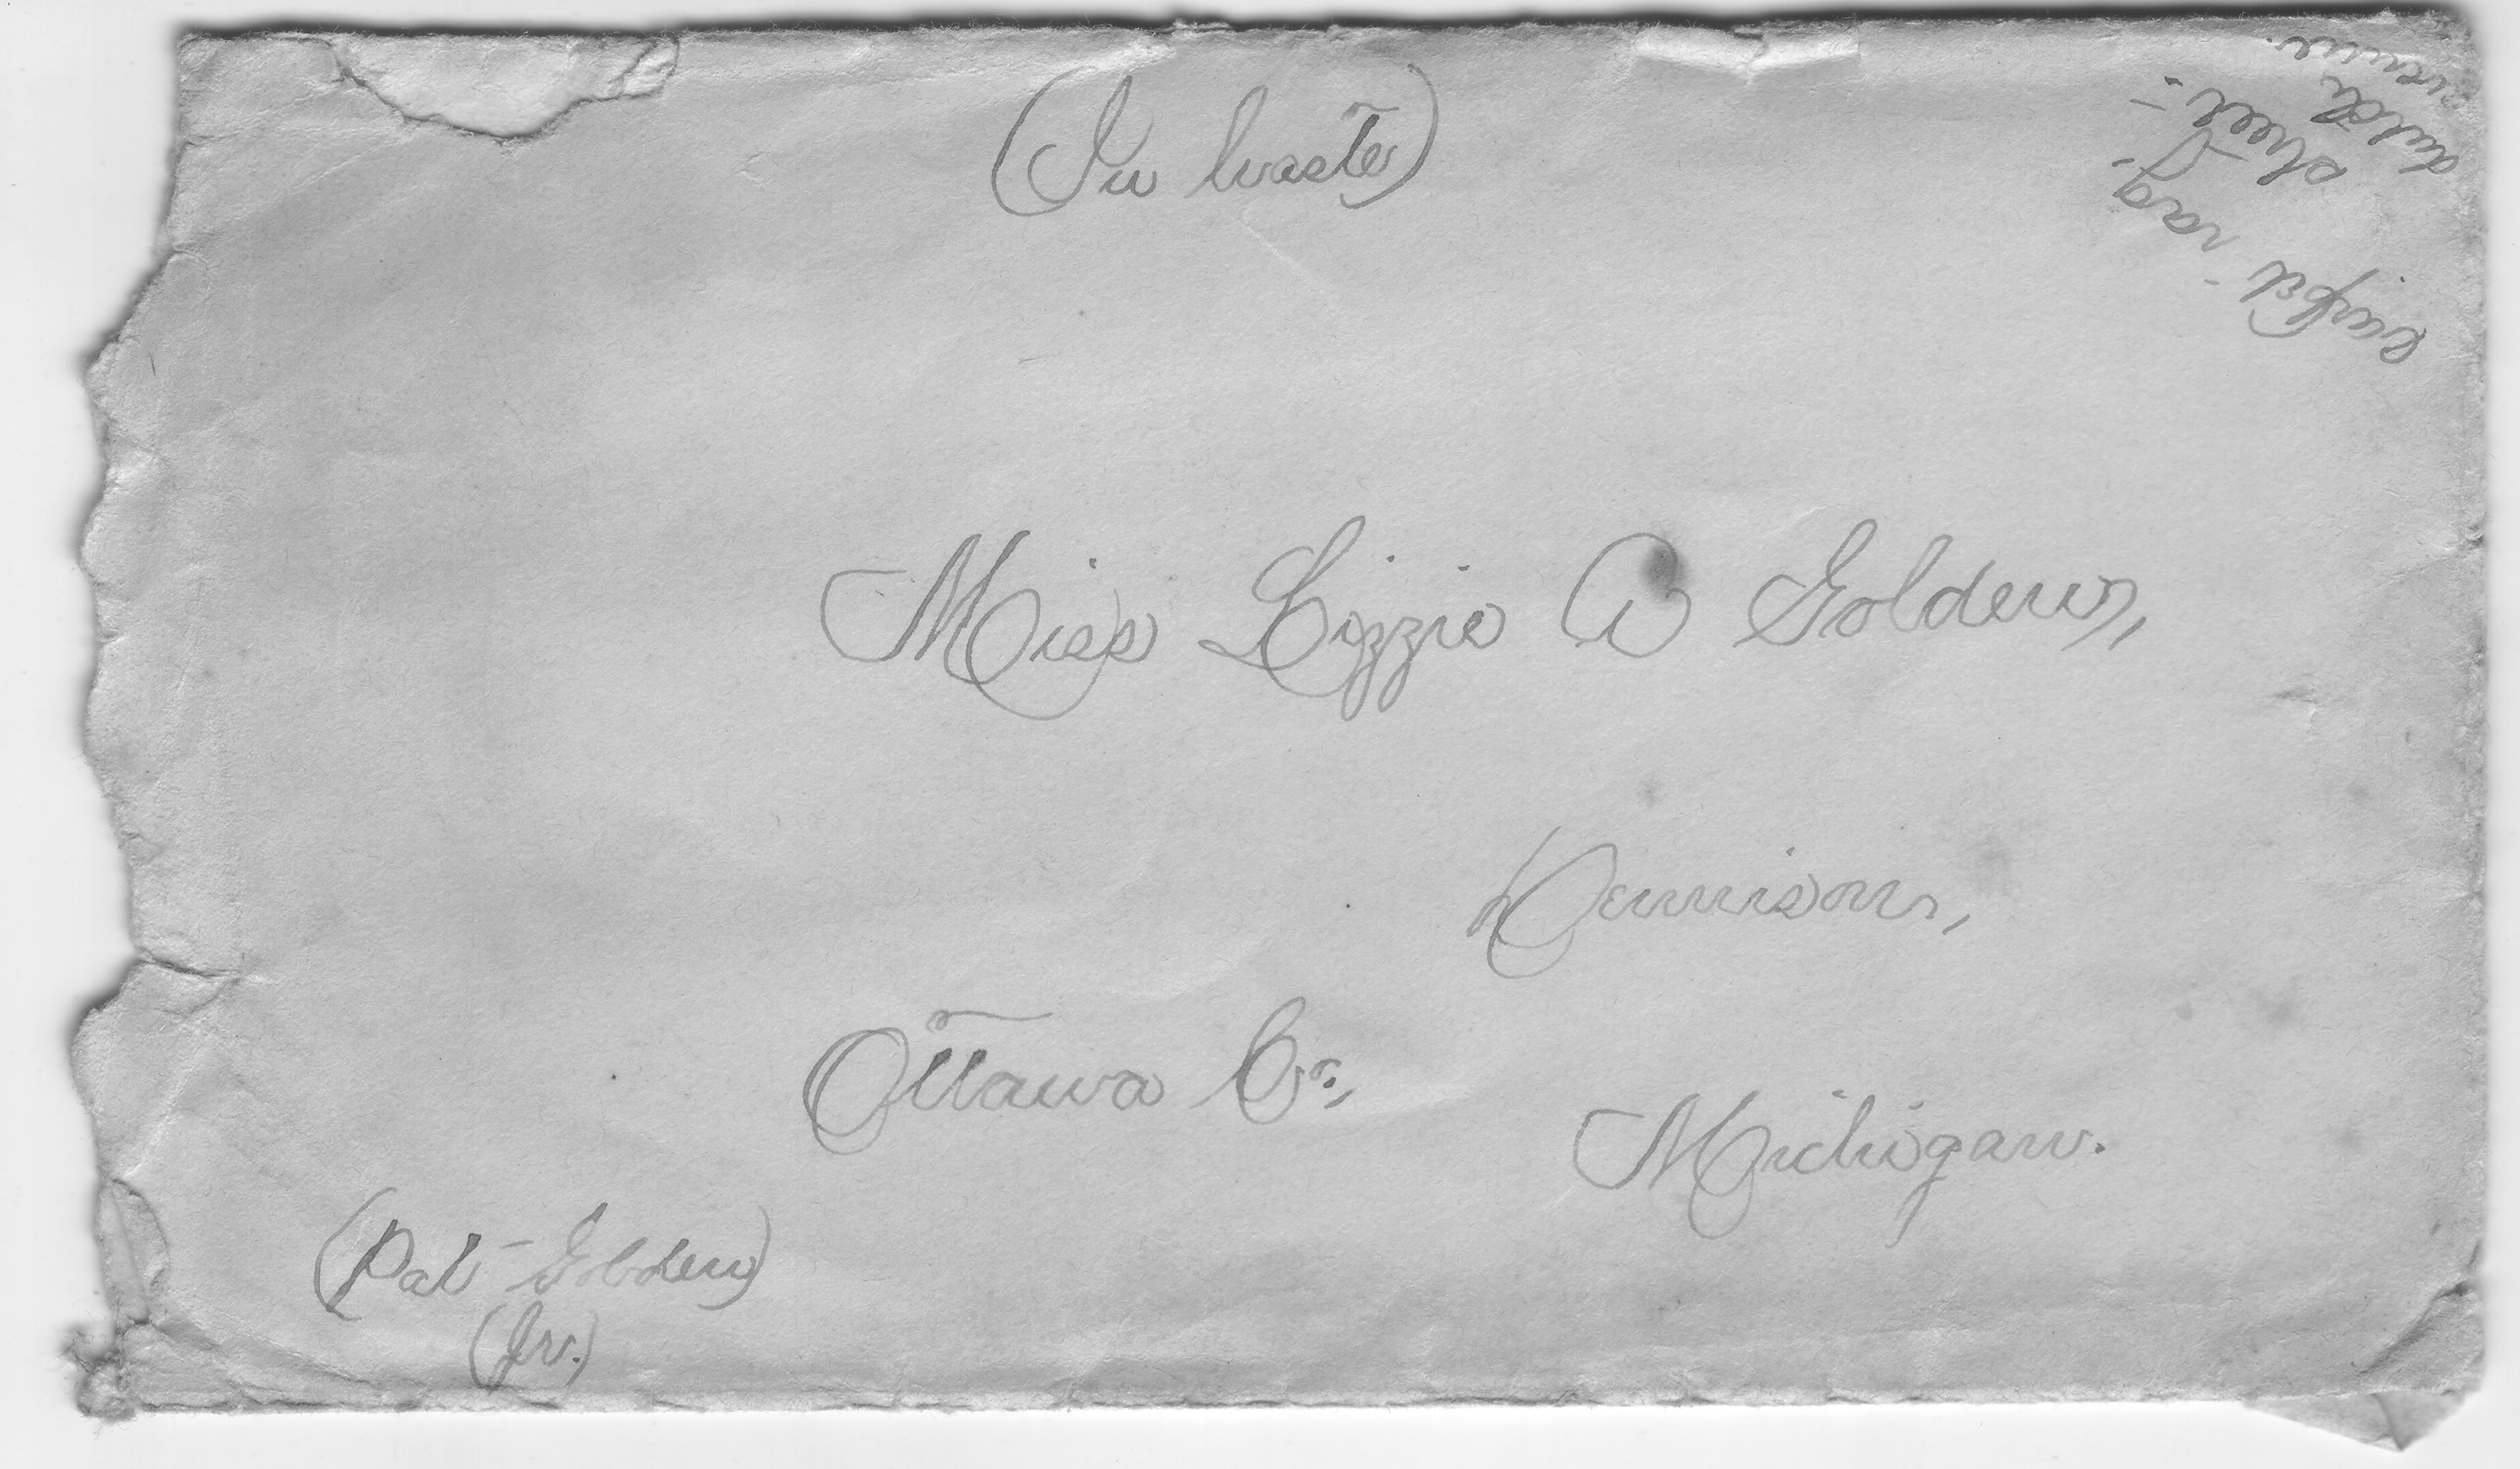 (In haste)
Miss Lizzie A Golden,
Dennison,
Ottawa Co.,
Michigan.
(Pat - Golden)
(Jr.)
street. -